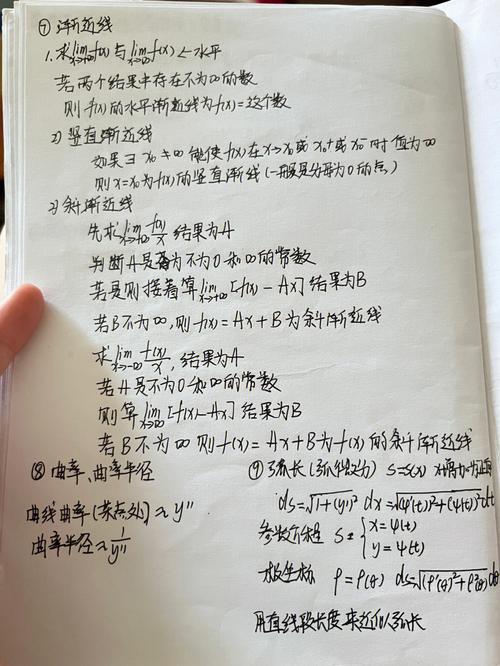 ⑦ 渐近线
1. 求lim x→+∞ f(x) 与 lim x→-∞ f(x) ← 水平
若两个结果中存在不为∞的数
则 f(x)的水平渐近线为f(x)=这个数
2) 竖直渐近线
如果∃ x₀≠∞ 能使f(x)在x→x₀或x₀+或x₀-时 值为∞
则x=x₀为f(x)的竖直渐线(一般是分母为0的点)
3) 斜渐近线
先求lim x→+∞ f(x)/x 结果为A
判断A是否为不为0和∞的常数
若是则接着算lim x→+∞ [f(x)-Ax] 结果为B
若B不为∞,则f(x)=Ax+B为斜渐近线
求lim x→-∞ f(x)/x, 结果为A
若A是不为0和∞的常数
则算lim x→-∞ [f(x)-Ax] 结果为B
若B不为∞ 则f(x)=Ax+B为f(x)的斜渐近线
⑧ 曲率、曲率半径
曲线曲率(某点处)≈y''
曲率半径≈1/y''
⑨ 弧长(弧微分) s=s(x)
ds=√(1+(y')²) dx=√((φ'(t))²+(ψ'(t))²) dt
参数方程 s= { x=φ(t)
y=ψ(t)
极坐标 ρ=ρ(θ) ds=√((ρ'(θ))²+ρ²(θ)) dθ
用直线段长度来近似弧长